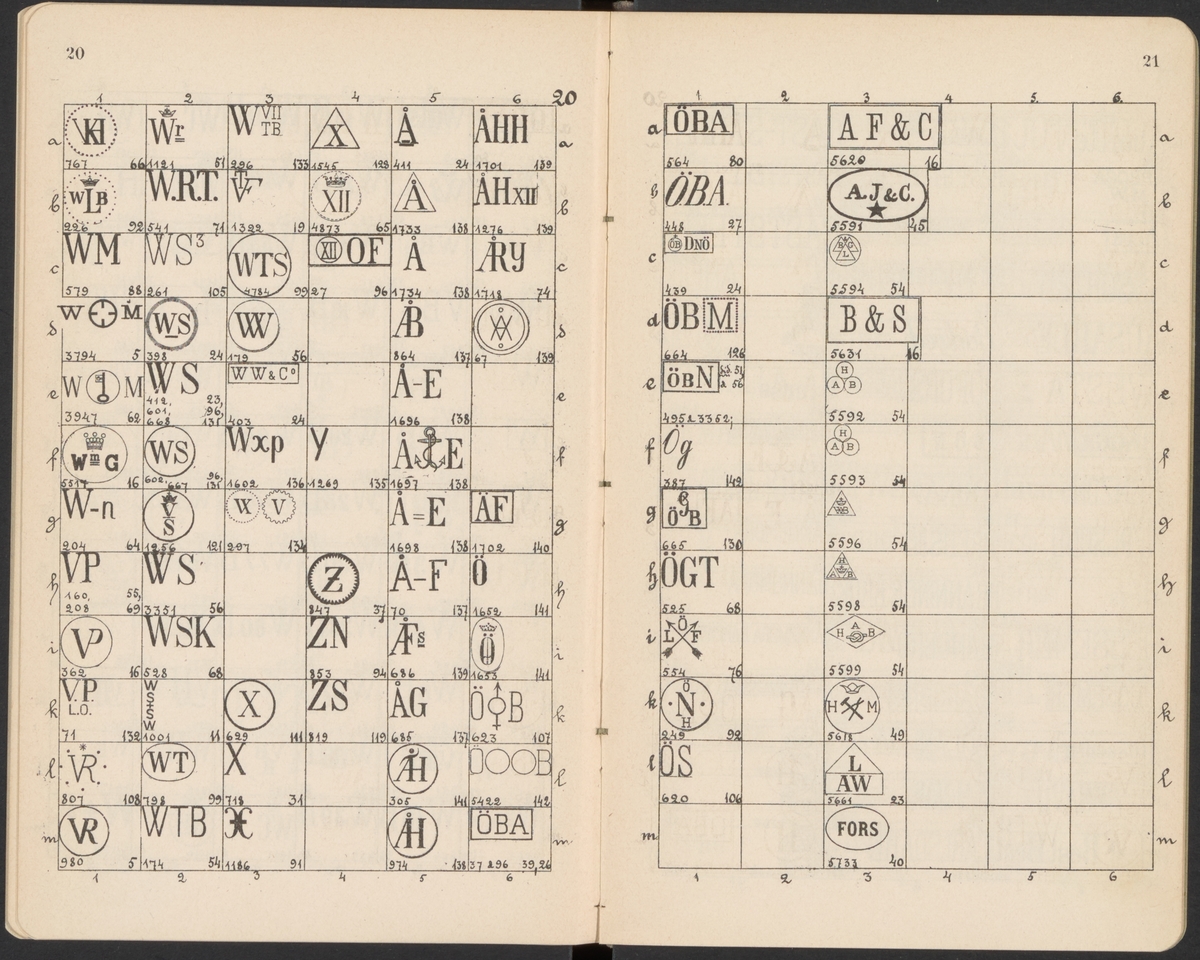 20
1 2 3 4 5 6 20
a VKH Wr W VII TB X Å ÅHH a
767 66 1121 51 296 133 1545 128 411 24 1701 139
b WLB W.R.T. XII Å ÅHXII b
226 92 541 71 1322 19 4873 65 1733 138 1276 139
c WM WS³ WTS XII OF Å ÅRY c
579 88 261 105 4784 99 27 96 1734 138 1718 74
d W M WS VW ÅB d
3794 5 398 24 179 56 864 137 67 139
e W M WS WW&Co Å-E e
3947 62 412, 23, 601, 96, 668 131 403 24 1696 138
f WmG WS Wxp y Å E f
5517 16 602, 667 96, 131 1602 136 1269 135 1697 138
g W-n V S W V Å=E ÄF g
204 64 1256 121 297 134 1698 138 1702 140
h VP WS Z Å-F Ö h
160, 208 55, 69 3351 56 847 37 70 137 1652 141
i VP WSK ZN ÅFs Ö i
362 16 528 68 853 94 686 139 1653 141
k V.P. L.O. W S S W X ZS ÅG Ö B k
71 132 1001 11 629 111 819 119 685 137 623 107
l VR WT X ÅH ÖOOB l
807 108 798 99 718 31 305 141 5422 142
m VR WTB ÅH ÖBA m
980 5 174 54 1186 91 974 138 37 296 39,26
1 2 3 4 5 6
21
1 2 3 4 5. 6.
a ÖBA A F & C a
564 80 5620 16
b Ö.B.A. A.J & C. b
448 27 5591 45
c ÖB DNÖ B G L c
439 24 5594 54
d ÖB M B & S d
664 126 5631 16
e ÖBN H A B e
495 & 3362; 5592 54
f Ög H A B f
387 142 5593 54
g G ÖB WS g
665 130 5596 54
h ÖGT H A B h
525 68 5598 54
i L Ö F H A B i
554 76 5599 54
k Ö N H H M k
249 92 5618 49
l ÖS L AW l
620 106 5661 23
m FORS m
5733 40
1 2 3 4 5 6